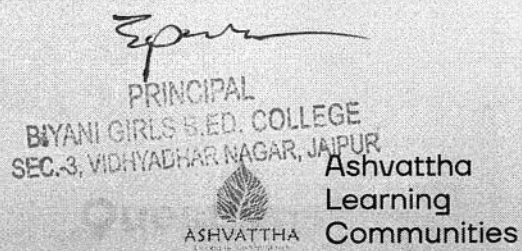 PRINCIPAL
BIYANI GIRLS B.ED. COLLEGE
SEC.-3, VIDHYADHAR NAGAR, JAIPUR
Ashvattha
Learning
Communities
ASHVATTHA